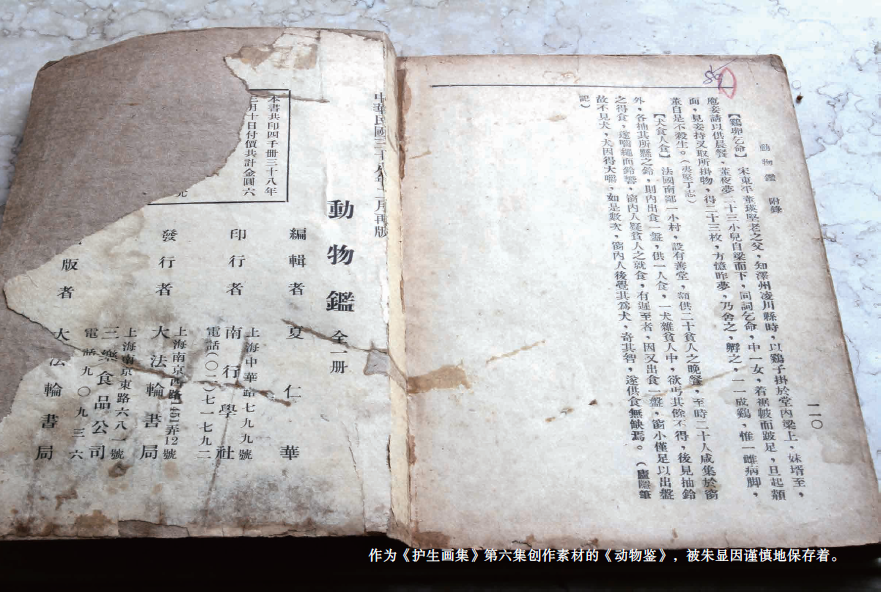 動物鑑 附錄
【鷄卵乞命】 宋東平董瑛堅老之父,知澤州凌川縣時,以鷄子掛於堂內梁上,妹壻至,
庖妾請以供晨餐,董夜夢二十三小兒自梁而下,同詞乞命,中一女,着裙帔而跛足,旦起頮
面,見妾持叉取所掛物,得二十三枚,方憶昨夢,乃舍之,孵之,一一成鷄,惟一雌病脚,
董自是不殺生。(夷堅丁志)
【犬食人食】 法國南部一小村,設有善堂,額供二十貧人之晚餐,至時二十人咸集於窗
外,各抽其所懸之鈴,則內出食一盤,供一人食,一犬雜貧人中,欲丐其餘不得,後見抽鈴
之得食,遂嚙繩而鈴響,窗內人疑貧人之就食,有遲至者,因又出食一盤,窗小僅足以出盤
故不見犬,犬因得大嚼,如是數次,窗內人後覺其爲犬,奇其智,遂供食無缺焉。(
記)
一一〇
中華民國三十八年二月再版
動物鑑 全一册
編輯者 夏仁華
印行者 南行學社
上海中華路七九九號
電話(〇二)七一七九二
發行者 大法輪書局
上海南京西路1451弄12號
三樂食品公司
上海南京東路六八一號
電話九〇九三六
版者 大法輪書局
本書共印四千册三十八年
三月十日付價共計金圓六
元
作为《护生画集》第六集创作素材的《动物鉴》,被朱显因谨慎地保存着。